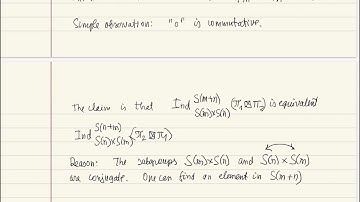 Simple observation: "o" is commutative.
The claim is that Ind S(m+n) S(m)×S(n) (π1 ⊠ π2) is equivalent
Ind S(n+m) S(n)×S(m) (π2 ⊠ π1)
Reason: The subgroups S(m)×S(n) and S(n)×S(m)
are conjugate. One can find an element in S(m+n)